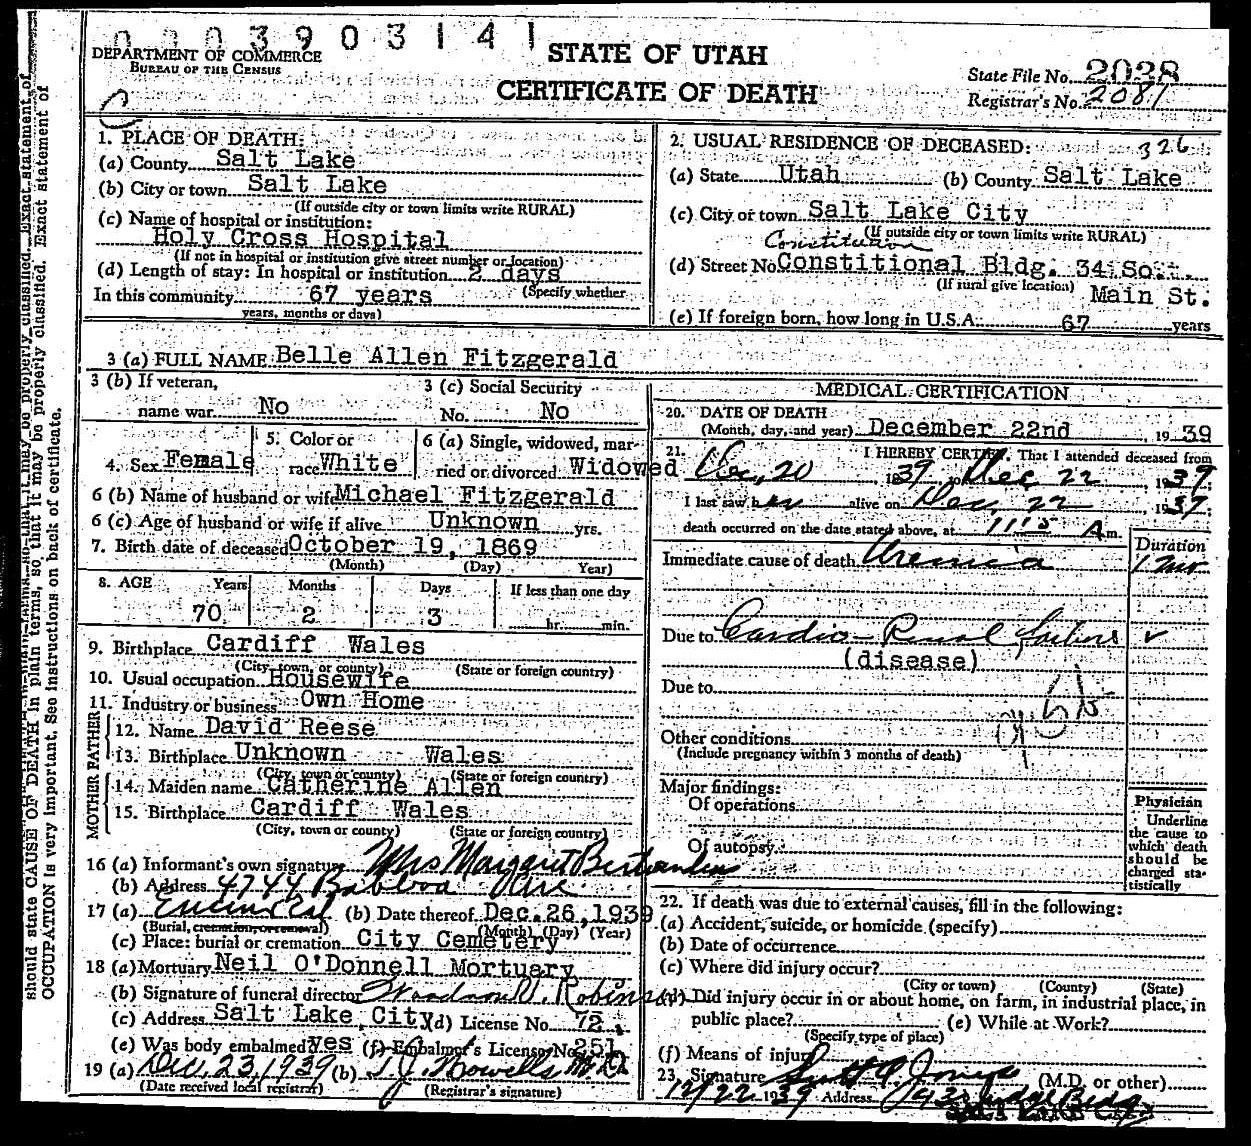 0003903141
DEPARTMENT OF COMMERCE
BUREAU OF THE CENSUS
STATE OF UTAH
CERTIFICATE OF DEATH
State File No. 2028
Registrar's No. 2081
C
1. PLACE OF DEATH:
(a) County Salt Lake
(b) City or town Salt Lake
(If outside city or town limits write RURAL)
(c) Name of hospital or institution:
Holy Cross Hospital
(If not in hospital or institution give street number or location)
(d) Length of stay: In hospital or institution 2 days
(Specify whether
In this community 67 years
years, months or days)
2. USUAL RESIDENCE OF DECEASED: 326
(a) State Utah (b) County Salt Lake
(c) City or town Salt Lake City
(If outside city or town limits write RURAL)
Constitution
(d) Street No. Constitional Bldg. 34 So.
(If rural give location) Main St.
(e) If foreign born, how long in U.S.A. 67 years
3 (a) FULL NAME Belle Allen Fitzgerald
3 (b) If veteran,
name war No
3 (c) Social Security
No. No
4. Sex Female
5. Color or
race White
6 (a) Single, widowed, mar-
ried or divorced Widowed
6 (b) Name of husband or wife Michael Fitzgerald
6 (c) Age of husband or wife if alive Unknown yrs.
7. Birth date of deceased October 19, 1869
(Month) (Day) Year)
8. AGE Years Months Days If less than one day
70 2 3 hr. min.
9. Birthplace Cardiff Wales
(City, town, or county) (State or foreign country)
10. Usual occupation Housewife
11. Industry or business Own Home
FATHER
12. Name David Reese
13. Birthplace Unknown Wales
(City, town or county) (State or foreign country)
MOTHER
14. Maiden name Catherine Allen
15. Birthplace Cardiff Wales
(City, town or county) (State or foreign country)
16 (a) Informant's own signature Mrs Margaret
(b) Address 4744 Ave
17 (a)
(Burial, cremation, or removal)
(b) Date thereof Dec. 26, 1939
(Month) (Day) (Year)
(c) Place: burial or cremation City Cemetery
18 (a) Mortuary Neil O'Donnell Mortuary
(b) Signature of funeral director Robinson
(c) Address Salt Lake City (d) License No. 72
(e) Was body embalmed? yes (f) Embalmer's License No. 251
19 (a) Dec. 23, 1939 (b) T.J. Howells M.D.
(Date received local registrar) (Registrar's signature)
MEDICAL CERTIFICATION
20. DATE OF DEATH
(Month, day, and year) December 22nd, 1939
21. I HEREBY CERTIFY, That I attended deceased from
Dec, 20 1939 to Dec 22, 1939;
I last saw her alive on Dec, 22 1939;
death occurred on the date stated above, at 11:15 A m.
Duration
Immediate cause of death Uremia 1 mo
Due to Cardio-Renal
(disease)
Due to
Other conditions
(Include pregnancy within 3 months of death)
Major findings:
Of operations
Of autopsy
Physician
Underline
the cause to
which death
should be
charged sta-
tistically
22. If death was due to external causes, fill in the following:
(a) Accident, suicide, or homicide (specify)
(b) Date of occurrence
(c) Where did injury occur?
(City or town) (County) (State)
(d) Did injury occur in or about home, on farm, in industrial place, in
public place? (e) While at Work?
(Specify type of place)
(f) Means of injury
23. Signature Jones (M.D. or other)
12/22 1939 Address Judge Bldg
SALT LAKE CITY
should state CAUSE OF DEATH in plain terms, so that it may be properly classified. Exact statement of
OCCUPATION is very important. See instructions on back of certificate.